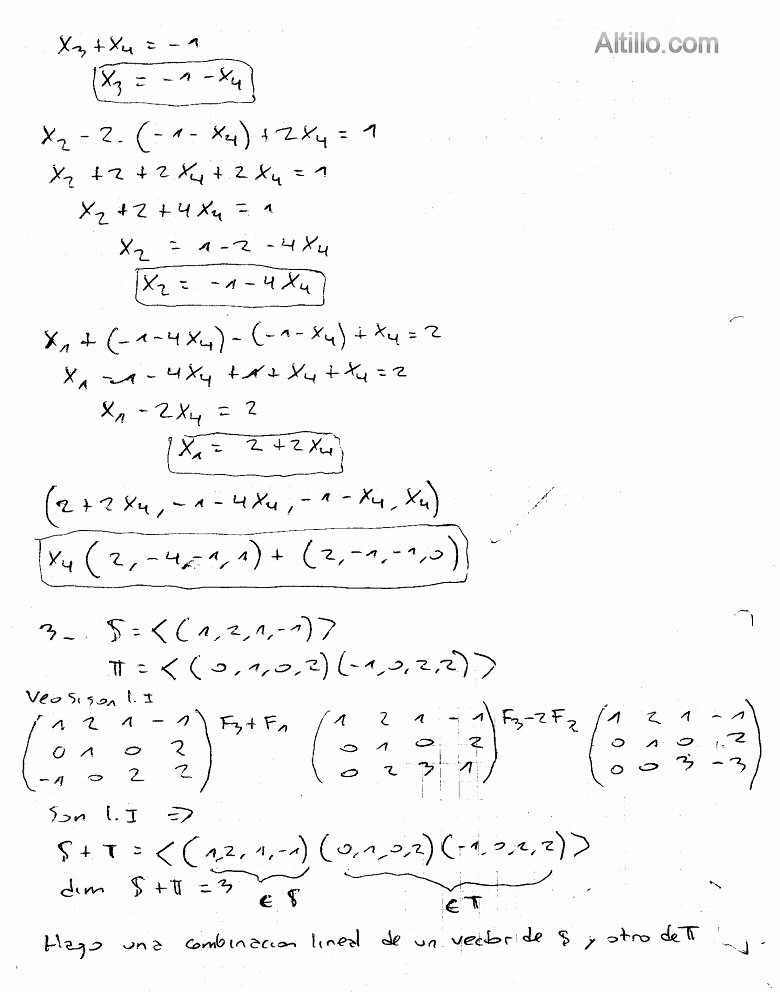 Altillo.com
X₃ + X₄ = -1
X₃ = -1 - X₄
X₂ - 2. (-1 - X₄) + 2X₄ = 1
X₂ + 2 + 2X₄ + 2X₄ = 1
X₂ + 2 + 4X₄ = 1
X₂ = 1 - 2 - 4X₄
X₂ = -1 - 4X₄
X₁ + (-1 - 4X₄) - (-1 - X₄) + X₄ = 2
X₁ - 1 - 4X₄ + 1 + X₄ + X₄ = 2
X₁ - 2X₄ = 2
X₁ = 2 + 2X₄
(2 + 2X₄, -1 - 4X₄, -1 - X₄, X₄)
X₄ (2, -4, -1, 1) + (2, -1, -1, 0)
3-. S = <(1, 2, 1, -1)>
T = <(0, 1, 0, 2) (-1, 0, 2, 2)>
Veo si son l.I
( 1 2 1 -1 ) F₃ + F₁ ( 1 2 1 -1 ) F₃ - 2F₂ ( 1 2 1 -1 )
( 0 1 0 2 ) ( 0 1 0 2 ) ( 0 1 0 2 )
( -1 0 2 2 ) ( 0 2 3 1 ) ( 0 0 3 -3 )
Son l.I ⇒
S + T = <(1, 2, 1, -1) (0, 1, 0, 2) (-1, 0, 2, 2)>
dim S + T = 3 ∈ S ∈ T
Hago una combinacion lineal de un vector de S y otro de T